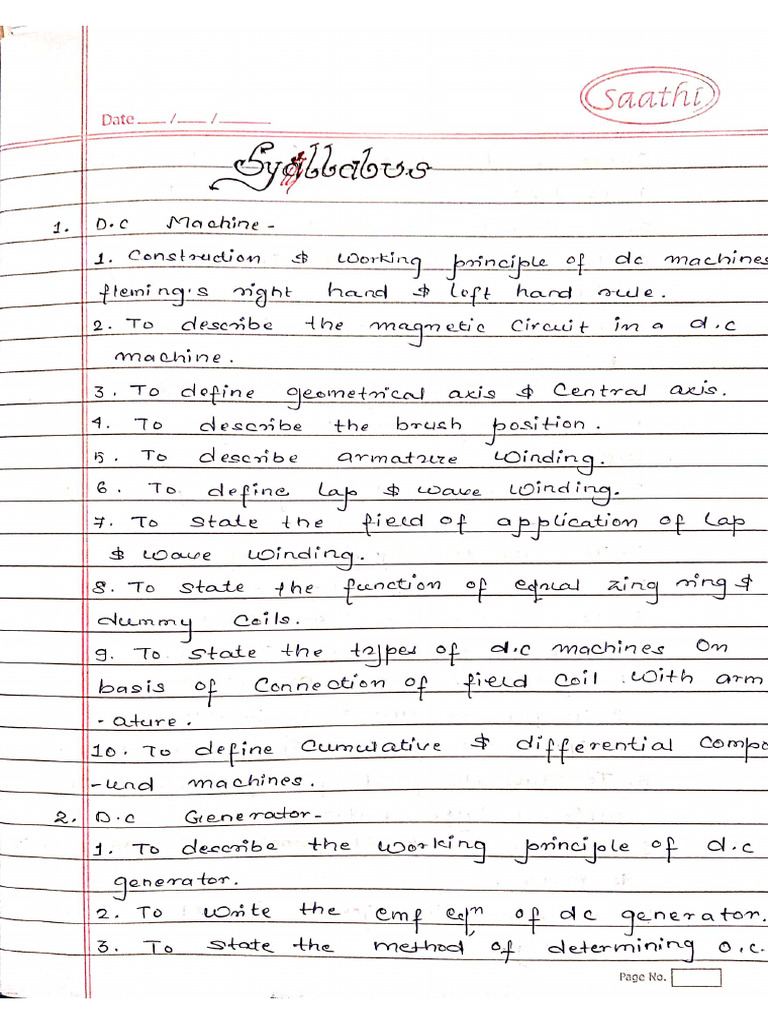 saathi
Date ___ / ___ / ______
Syllabus
1. D.c Machine -
1. Construction & working principle of dc machines
fleming's right hand & left hand rule.
2. To describe the magnetic circuit in a d.c
machine.
3. To define geometrical axis & Central axis.
4. To describe the brush position.
5. To describe armature winding.
6. To define lap & wave winding.
7. To state the field of application of lap
& wave winding.
8. To state the function of equal zing ring &
dummy coils.
9. To state the types of d.c machines on
basis of connection of field coil with arm
-ature.
10. To define cumulative & differential compo
-und machines.
2. D.c Generator-
1. To describe the working principle of d.c
generator.
2. To write the emf eqn of dc generator.
3. To state the method of determining o.c.
Page No.